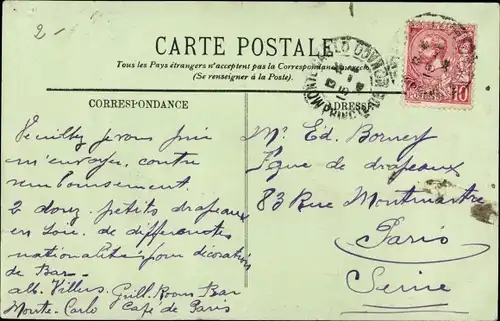 2-
CARTE POSTALE
Tous les Pays étrangers n'acceptent pas la Correspondance
(Se renseigner à la Poste).
MONTE-CARLO
PRINC
10
CORRESPONDANCE
ADRESSE
Veuillez je vous prie
m'envoyer, contre
remboursement.
2 douz. petits drapeaux
en soie. de différentes
nationalités pour décoration
de Bar-
alb. Villers. Grill-Room Bar
Monte-Carlo Café de Paris
Mr. Ed.
Fque de drapeaux
83 Rue Montmartre
Paris
Seine